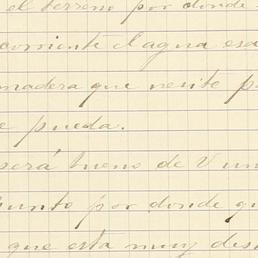 el terreno por donde
corriente el agua esa
madera que
e pueda.
será bueno de V un
punto por donde qu
que esta muy des